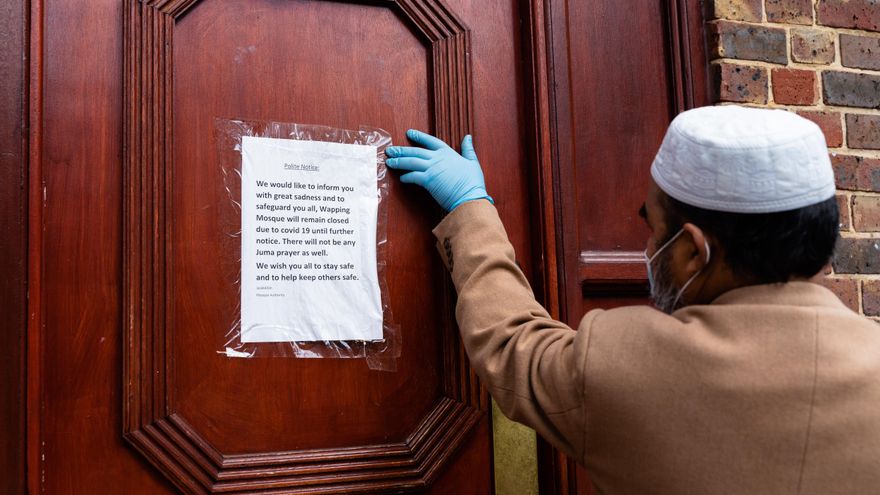 Polite Notice:
We would like to inform you
with great sadness and to
safeguard you all, Wapping
Mosque will remain closed
due to covid 19 until further
notice. There will not be any
Juma prayer as well.
We wish you all to stay safe
and to help keep others safe.
Mosque Authority